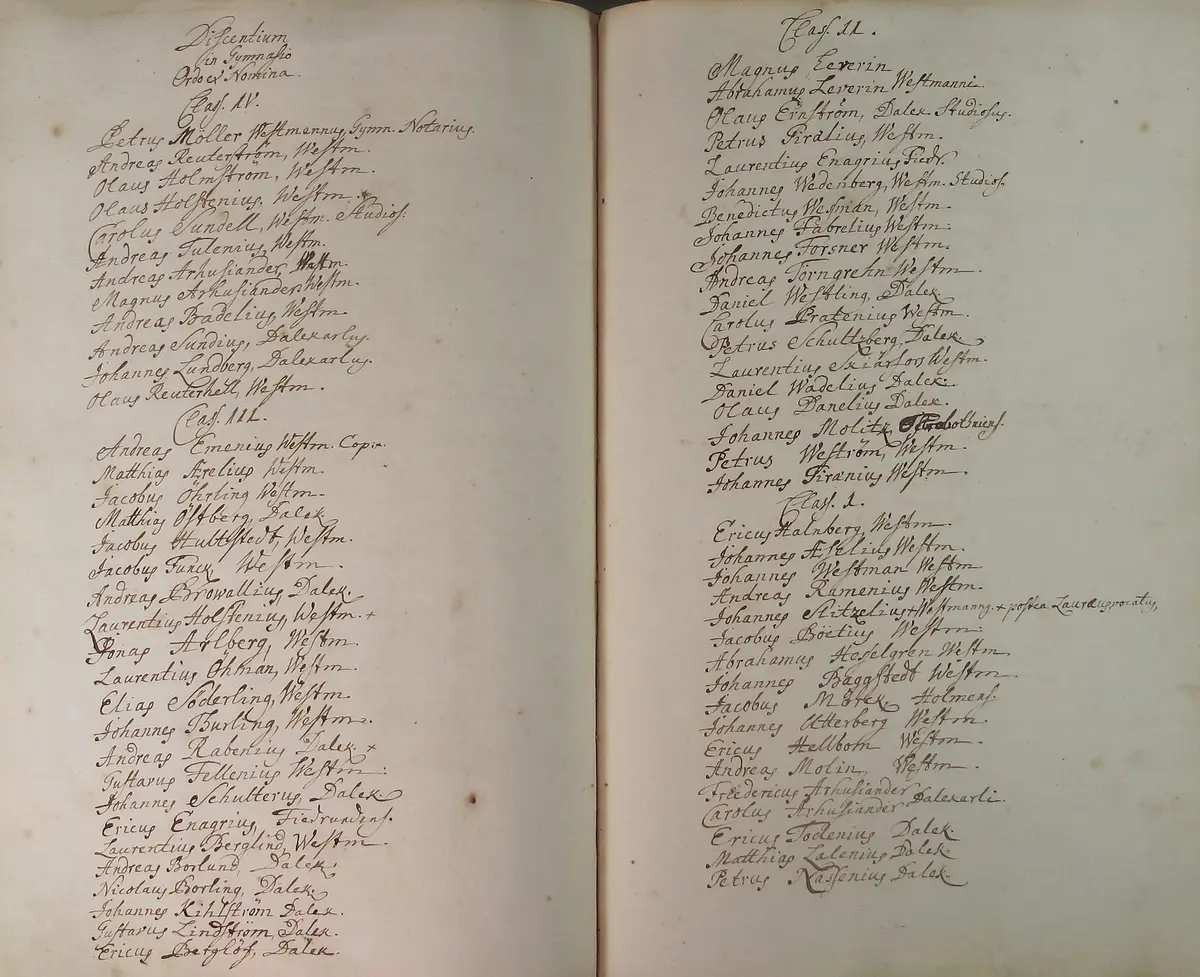 Discentium
in Gymnasio
Ordo et Nomina.
Class. IV.
Petrus Möller Westmannus, Gymn. Notarius.
Andreas Reuterström, Westm.
Olaus Holmström, Westm.
Olaus Holstenius, Westm. +
Carolus Sundell, Westm. Studios.
Andreas Tulenius, Westm.
Andreas Arhusiander, Westm.
Magnus Arhusiander, Westm.
Andreas Badelius, Westm.
Andreas Sundius, Dalekarlus.
Johannes Lundberg, Dalekarlus.
Olaus Reuterhell, Westm.
Class. III.
Andreas Emenius Westm. Cop.
Matthias Ærelius Westm.
Jacobus Öhrling Westm.
Matthias Östberg, Dalek.
Jacobus Hultstedt, Westm.
Jacobus Funck, Westm.
Andreas Browallius Dalek.
Laurentius Holstenius, Westm. +
Jonas Arlberg, Westm.
Laurentius Öhman, Westm.
Elias Söderling, Westm.
Johannes Burling, Westm.
Andreas Rabenius Dalek. +
Gustavus Fellenius Westm:
Johannes Schulterus, Dalek.
Ericus Enagrius, Fiedrundens.
Laurentius Berglind, Westm.
Andreas Borlund, Dalek.
Nicolaus Borling, Dalek.
Johannes Kihlström Dalek.
Gustavus Lindström, Dalek.
Ericus Berghöf, Dalek.
Class. II.
Magnus Leverin
Abrahamus Leverin Westmanni.
Olaus Ernström, Dalek. Studiosus.
Petrus Piralius, Westm.
Laurentius Enagrius Fiedr.
Johannes Wedenberg, Westm. Studios.
Benedictus Wesman, Westm.
Johannes Fabrelius Westm:
Johannes Forsner Westm.
Andreas Törngrehn Westm.
Daniel Westling, Dalek.
Carolus Pratenius Westm.
Petrus Schultzberg, Dalek.
Laurentius Skiärfors Westm.
Daniel Wadelius Dalek.
Olaus Danelius Dalek.
Johannes Molitz
Petrus Weström, Westm.
Johannes Piranius Westm.
Class. I.
Ericus Halnberg, Westm.
Johannes Æselius Westm.
Johannes Westman Westm
Andreas Ramenius Westm.
Johannes Slitzelius + Westmanng. + postea Lauræus vocatus,
Jacobus Böetius Westm:
Abrahamus Hesselgren Westm
Johannes Baggstedt Westm.
Jacobus Mörck Holmens.
Johannes Otterberg Westm.
Ericus Hellbom Westm.
Andreas Molin, Westm.
Friedericus Arhusiander
Carolus Arhusiander Dalekarli.
Ericus Todenius Dalek.
Matthias Lalenius Dalek.
Petrus Nassenius Dalek.